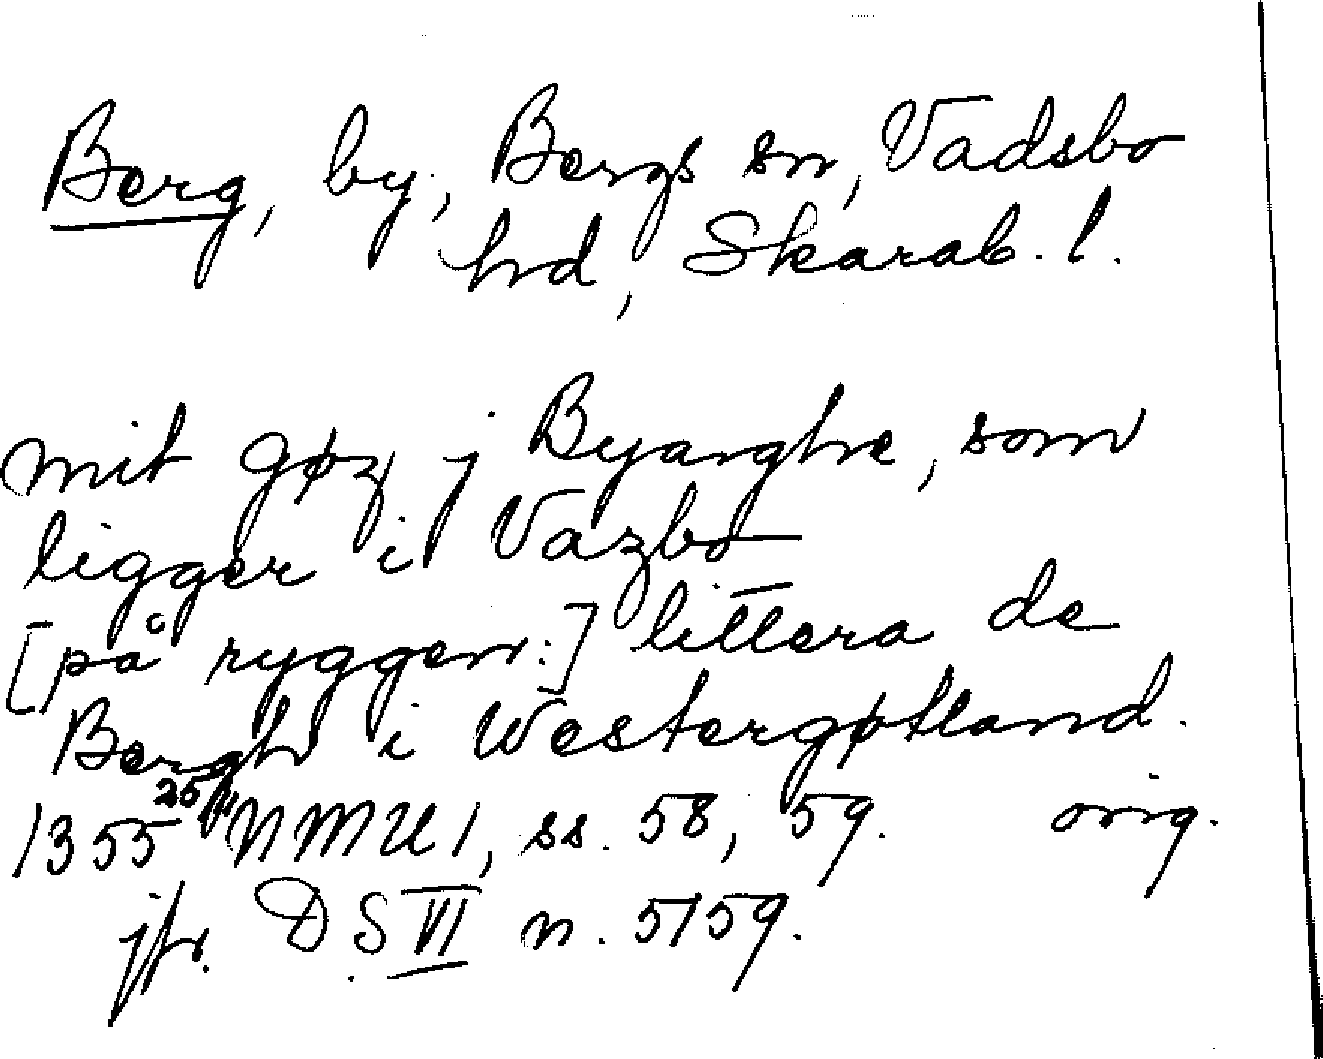 Berg, by, Bergs sn, Vadsbo
hd, Skarab. l.
mit gøz j Byærghe, som
ligger i Vazbo
[på ryggen:] littera de
Bergh i Westergøtland.
1355 NMU 1, ss. 58, 59. orig.
jfr. DS VI n. 5159.